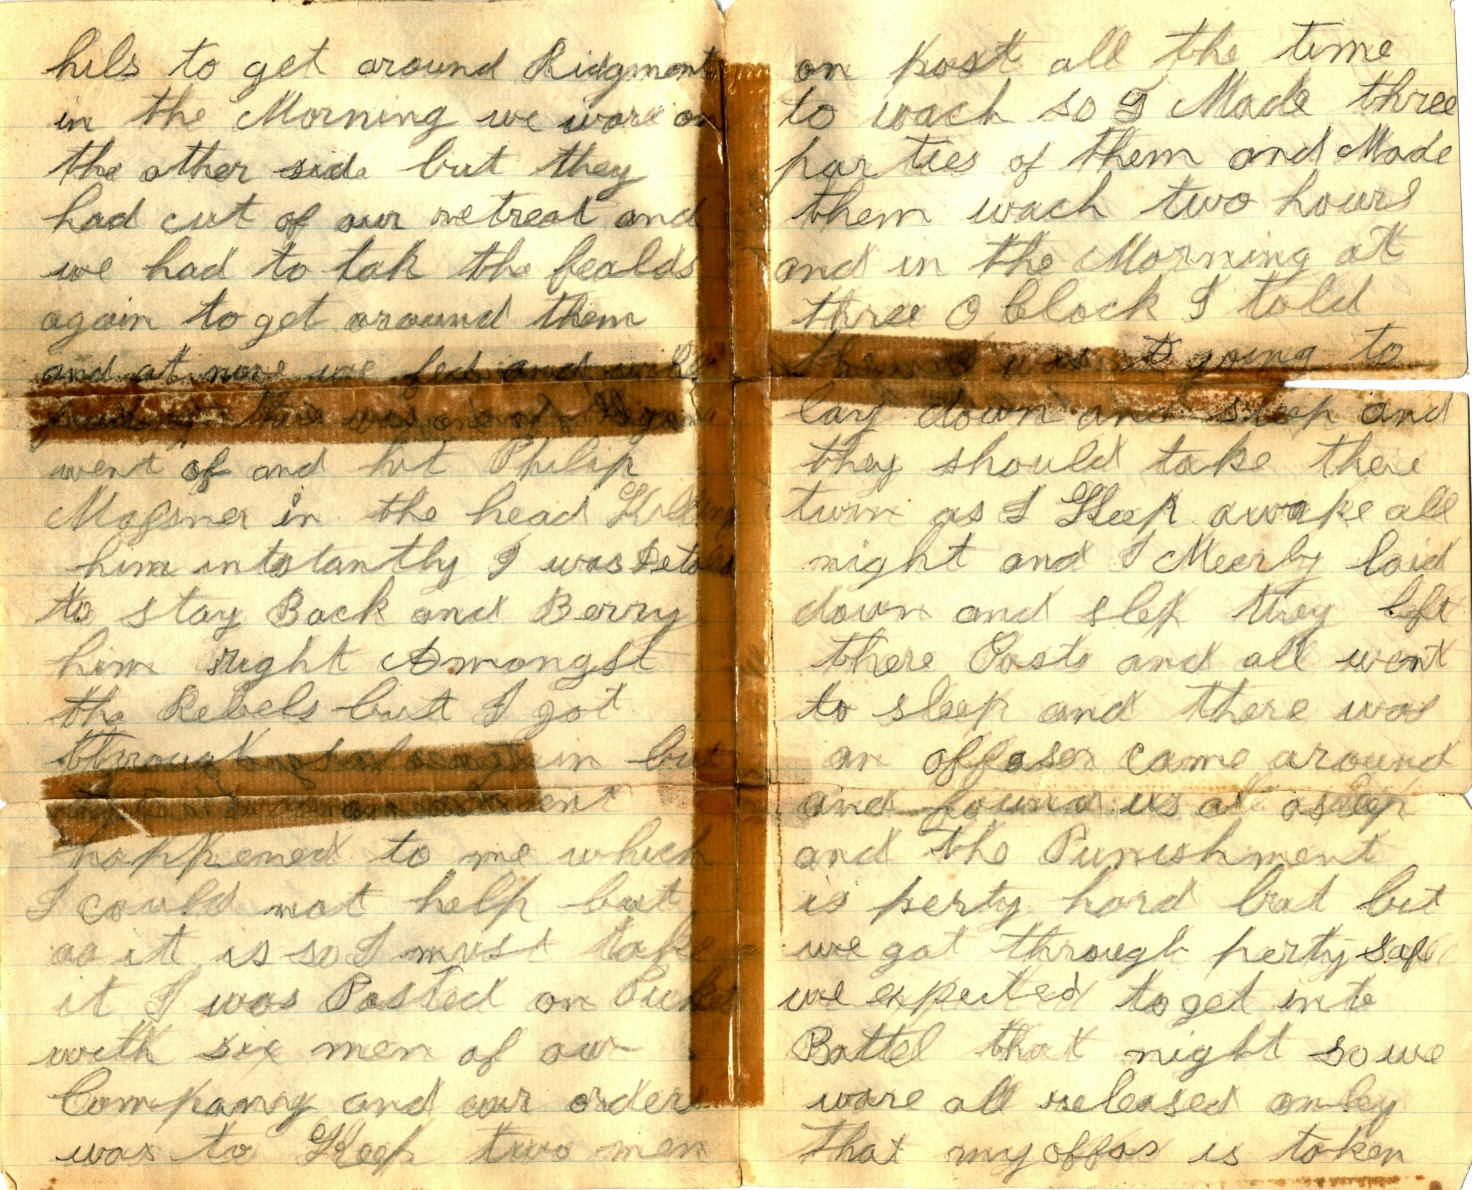 hils to get around Ridgment
in the Morning we ware on
the other side but they
had cut of our retreat and
we had to tak the fealds
again to get around them
and at nove we fed and
there was one of
went of and hit Philip
in the head Killing
him intstantly I was Detaled
to stay Back and Berry
him right Amongst
the Rebels but I got
through in but

happened to me which
I could not help but
as it is so I must take
it I was Posted on Picket
with six men of our
Company and our orders
was to Keep two men
on post all the time
to wach so I Made three
parties of them and Made
them wach two hours
and in the Morning at
three O Clock I told
them I was going to
lay down and sleep and
they should take there
turn as I Keep awake all
night and I Meerly laid
down and slep they left
there Posts and all went
to sleep and there was
an offaser came around
and found us all asleep
and the Punishment
is perty hard bat but
we got through perty safe
we expected to get into
Battel that night so we
ware all released only
that my offas is taken